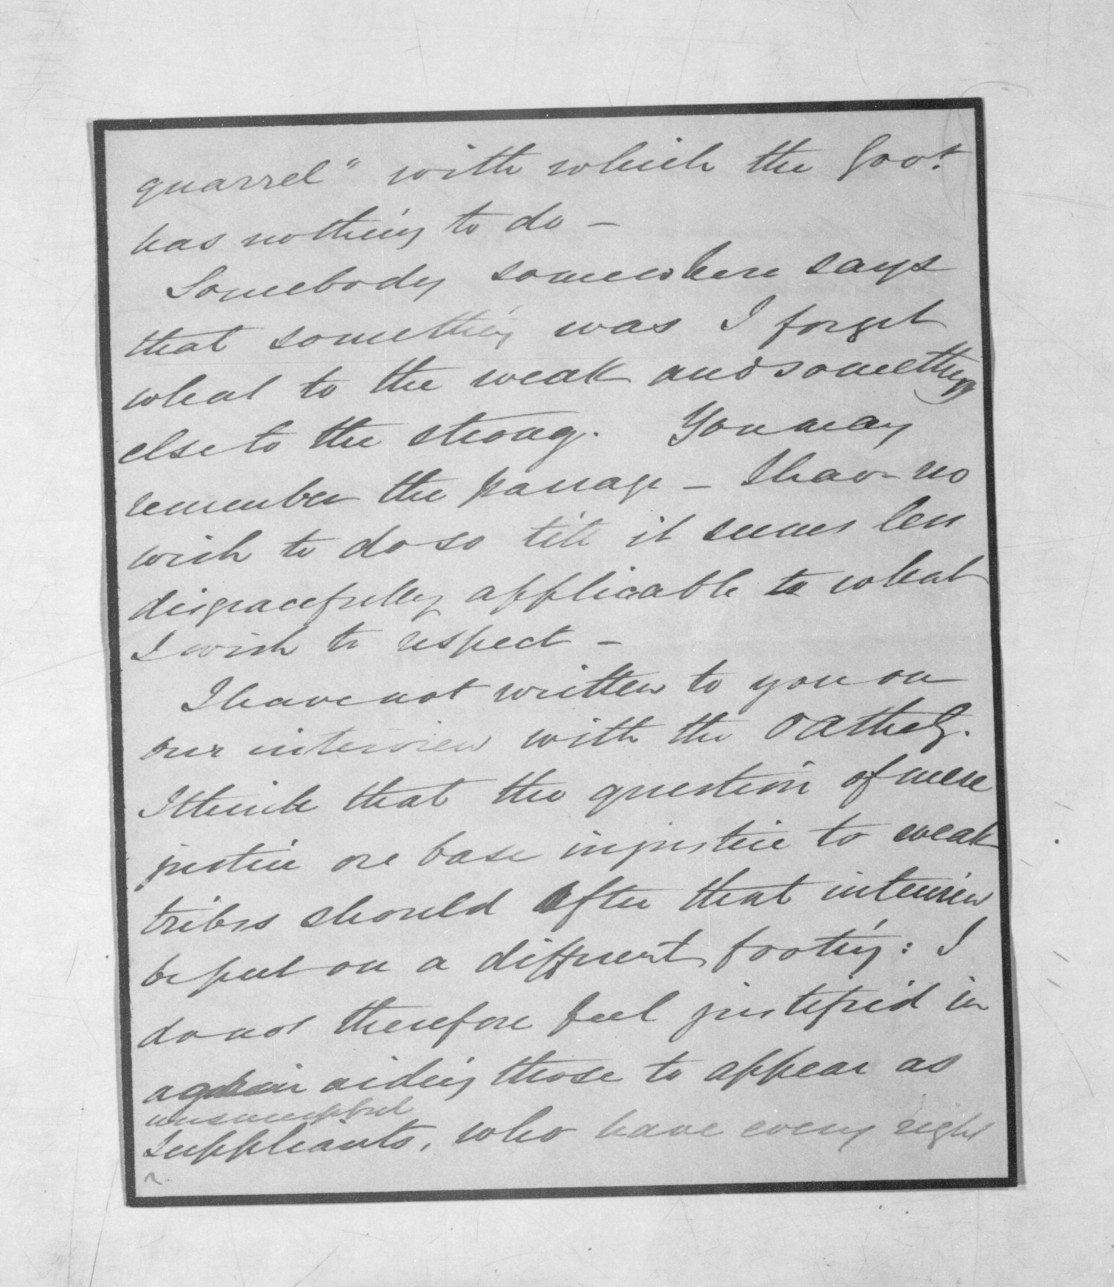 quarrel" with which the Govt.
has nothing to do –
Somebody somewhere says
that something was I forget
what to the weak and something
else to the strong. You may
remember the passage – I have no
wish to do so till it seems less
disgracefully applicable to what
I wish to respect –
I have not written to you on
our interview with the
I think that the question of mere
justice or base injustice to weak
tribes should after that interview
be put on a different footing: I
do not therefore feel justified in
again aiding those to appear as
unsuccessful
suppliants, who have every right